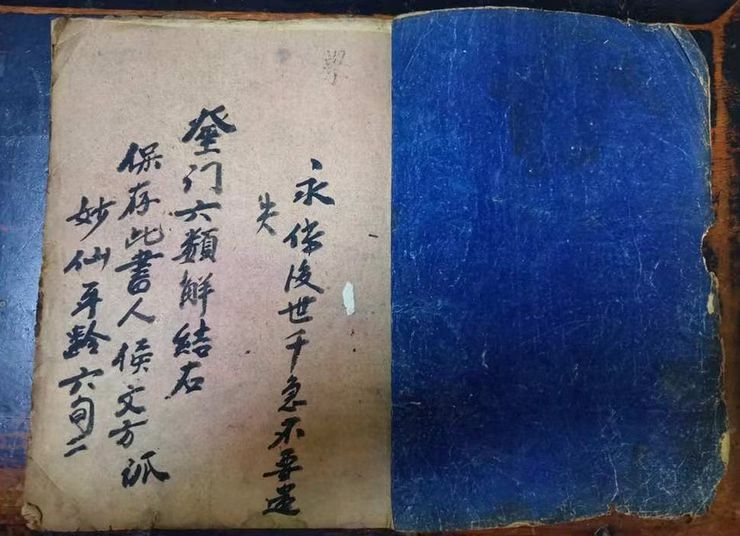 永傳後世千急不要遺
失
门六類解結右
保存此書人侯文方泒
妙仙年齡六旬二